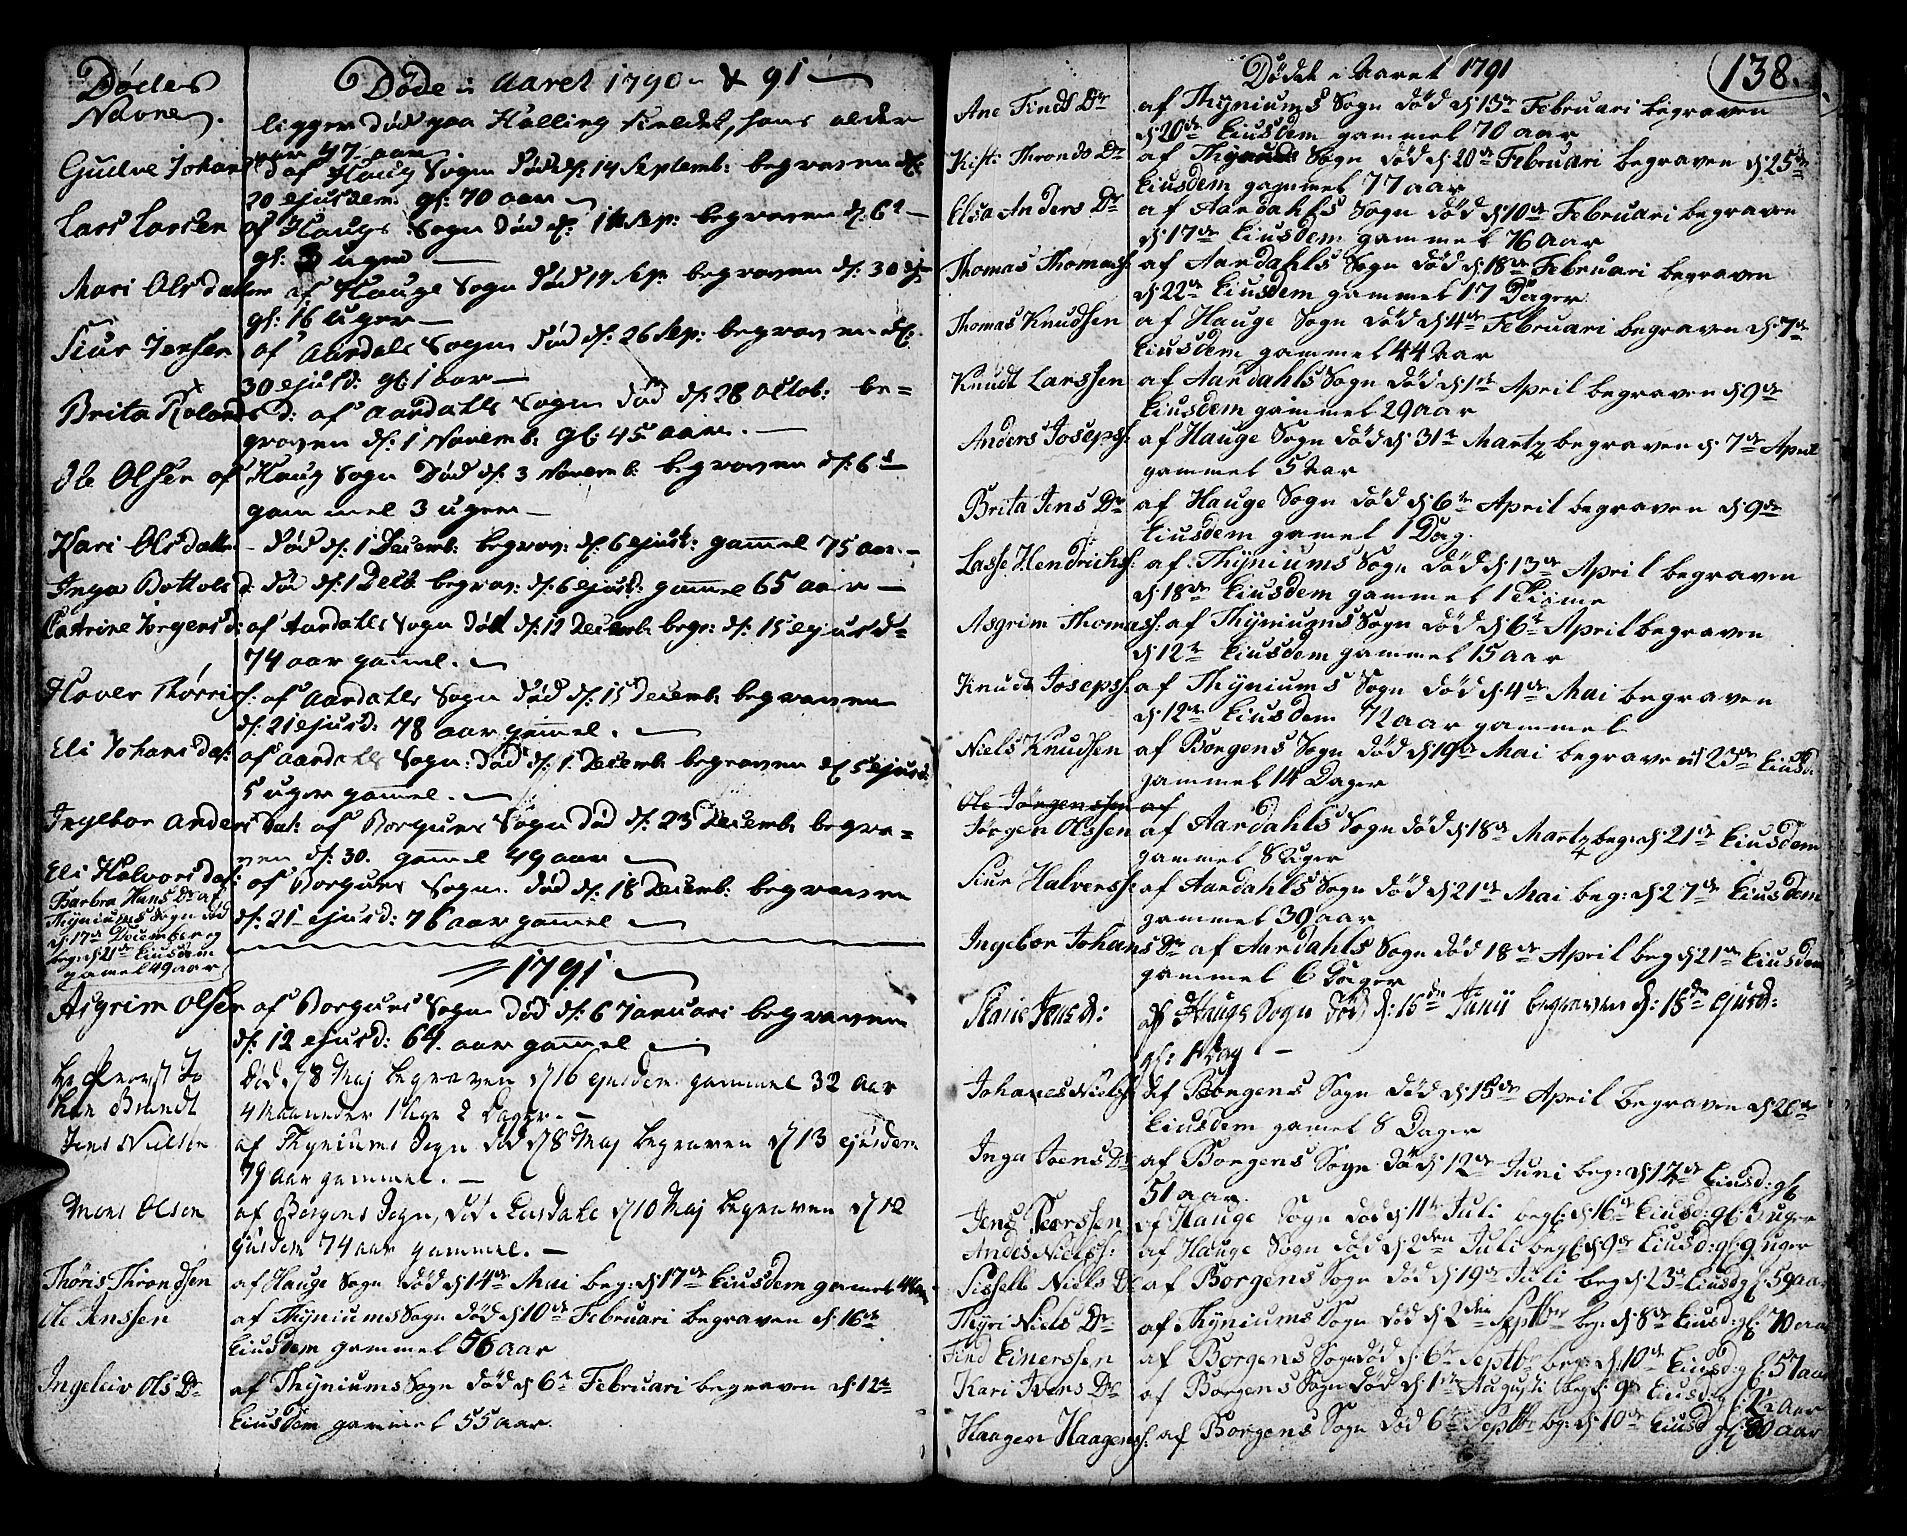 Dødes Navne.
Døde i Aaret 1790 & 91
ligger død paa Halling Fieldet, hans alder
var 47 aar
Gudve Johans d af Haug Sogn død d: 14 Septemb: begraven d:
20 ejusdem gl: 70 aar
Lars Larsen af Haugs Sogn død d: 1 Sep: begraven d: 6t
gl: 3 uger
Mari Olsdatter af Hauge Sogn død 19 Sep: begraven d: 30 ej
gl: 16 uger
Siur Jensen af Aardals Sogn død d: 26 Sep: begraven d:
30 ejusd: gl: 1 aar
Brita Rolands d: af Aardahls Sogn død d: 28 Octob: be=
graven d: 1 Novemb: gl: 45 aar.
Ole Olsen af Haug Sogn Død d: 3 Novemb: begraven d: 6t
gammel 3 uger
Kari Olsdatter - død d: 1 Decemb: begrav: d: 6 ejusd: gamel 75 aar
Inga Bottols d: død d: 1 Decb begrav: d: 6 ejusd: gamel 65 aar
Catrine Jørgens d: af Aardahls Sogn død d: 12 Decemb: begr: d: 15 ejusd=
74 aar gamel.
Haver Thorris s: af Aardahls Sogn død d: 15 Decemb: begraven
d: 21 ejusd: 78 aar gamel.
Eli Johans dat: af Aardahls Sogn: død d: 1 Decemb: begraven d: 5 ejusd
5 uger gamel.
Ingebor Anders dat: af Borgens Sogn død d: 23 Decemb: begra=
ven d: 30. gamel 49 aar
Eli Halvors dat: af Borgens Sogn. død d: 18 Decemb: begraven
d: 21 ejusd: 76 aar gamel
Barbra Hans Dr af
Thyniums Sogn død
d: 17de December
beg: d: 21de Eiusdem
gamel 49 aar
1791
Asgrim Olsen af Borgens Sogn død d: 6 Januari begraven
d: 12 ejusd: 64. aar gamel
død d 8 Maj begraven d 16 ejusdem gammel 32 aar
han Brandt
4 Maaneder 1 Uge 2 Dager.
Jens Nielsen af Thyniums Sogn død d 8 Maj begraven d 13 ejusdem
79 aar gammel.
Mons Olsen af Borgens Sogn, død i Leirdahl d 10 Maj begraven d 12
Ejusdem 74 aar gammel.
Thøris Throndsen af Hauge Sogn død d: 14de Mai beg: d: 17de Eiusdem gamel
Ole Jenssen af Thyniums Sogn død d: 10de Februari begraven d: 16de
Eiusdem gammel 56 aar
Ingeleiv Ols Dr af Thyniums Sogn død d: 6te Februari begraven d: 12te
Eiusdem gammel 55 aar.
138.
Døde i Aaret 1791
Ane Finds Dr af Thyniums Sogn død d: 13de Februari begraven
d: 20de Eiusdem gammel 70 aar
Kist: Thronds Dr af Thyniums Sogn død d: 20de Februari begraven d: 25de
Eiusdem gammel 77 aar
Elsa Anders Dr af Aardahls Sogn død d: 10de Februari begraven
d: 17de Eiusdem gammel 76 aar
Thomas Thomass: af Aardahls Sogn død d: 18de Februari begraven
d: 22de Eiusdem gammel 17 Dager
Thomas Knudsen af Hauge Sogn død d: 4de Februari begraven d: 7de
Eiusdem gammel 44 aar
Knudt Larssen af Aardahls Sogn død d: 1te April begraven d: 9de
Eiusdem gammel 29 aar
Anders Joseps: af Hauge Sogn død d: 31te Martz begraven d 7de April
gammel 5 aar
Brita Jens Dr af Hauge Sogn død d: 6te April begraven d: 9de
Eiusdem gamel 1 Dag.
Lasse Hendrichs: af Thyniums Sogn død d: 13de April begraven
d: 18de Eiusdem gammel 1 Time
Asgrim Thomas: af Thyniums Sogn død d: 6te April begraven
d: 12te Eiusdem gammel 15 aar
Knudt Joseps: af Thyniums Sogn død d: 4de Mai begraven
d: 12te Eiusdem 72 aar gammel
Niels Knudsen af Borgens Sogn død d: 19de Mai begraven d 23de Eiusd
gammel 14 Dager
Ole Jørgenssen af
Jørgen Olssen af Aardahls Sogn død d: 18de Martz beg: d: 21de Eiusdem
gammel 8 uger
Siur Halverss: af Aardahls Sogn død d: 21de Mai beg: d: 27de Eiusdem
gammel 39 aar
Ingebor Johans Dr af Aardahls Sogn død 18de April beg d: 21de Eiusdem
gammel 6 Dager
Marie Jens D: af Haugs Sogn død d: 15de Junii begraven d: 18de Ejusd:
gl: 1 dag
Johanes Niels: af Borgens Sogn død d: 15de April begraven d: 26de
Eiusdem gamel 8 Dager
Inga Joens Dr af Borgens Sogn død d: 12de Juni beg: d: 17de Eiusd: gl
51 aar.
Jens Peerssen af Hauge Sogn død d: 11te Juli begl: d: 16de Eiusd: gl: 3 uger
Andes Nielss: af Hauge Sogn død d: 2den Juli begl: d: 9de Eiusd: gl: 9 uger
Sissele Niels Dr af Borgens Sogn død d: 19de Juli beg d: 23de Eiusd gl 59 aar
Thyri Niels Dr af Thyniums Sogn død d: 2den Septbr beg: d: 8de Eiusd: gl: 70 aar
Find Einerssen af Borgens Sogn død d: 6te Septbr beg: d: 10de Eiusd: gl 57 aar
Kari Ivers Dr af Borgens Sogn død d: 1te Augusti beg: d: 9de Eiusd: gl: 2½ aar
Haagen Haagens: af Borgens Sogn død 6te Septbr bg: d: 10de Eiusd gl: 80 aar